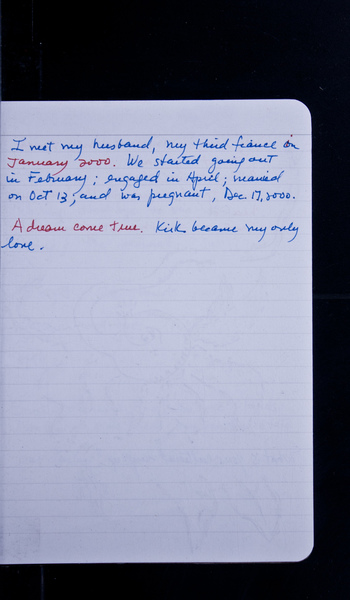 I met my husband, my third fiance in
January 2000. We started going out
in February; engaged in April; married
on Oct 13, and was pregnant, Dec. 17, 2000.
A dream come true. Kirk became my only
love.